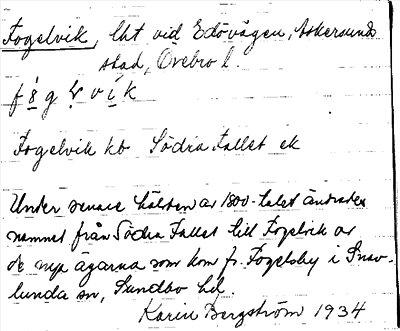 Fogelvik, lht vid Edövägen, Askersunds
stad, Örebro l.
Fogelvik kb Södra Fallet ek
Under senare hälften av 1800-talet ändrades
namnet från Södra Fallet till Fogelvik av
de nya ägarna som kom fr. Fogelsby i Snav-
lunda sn, Sundbo hd.
Karin Bergström 1934